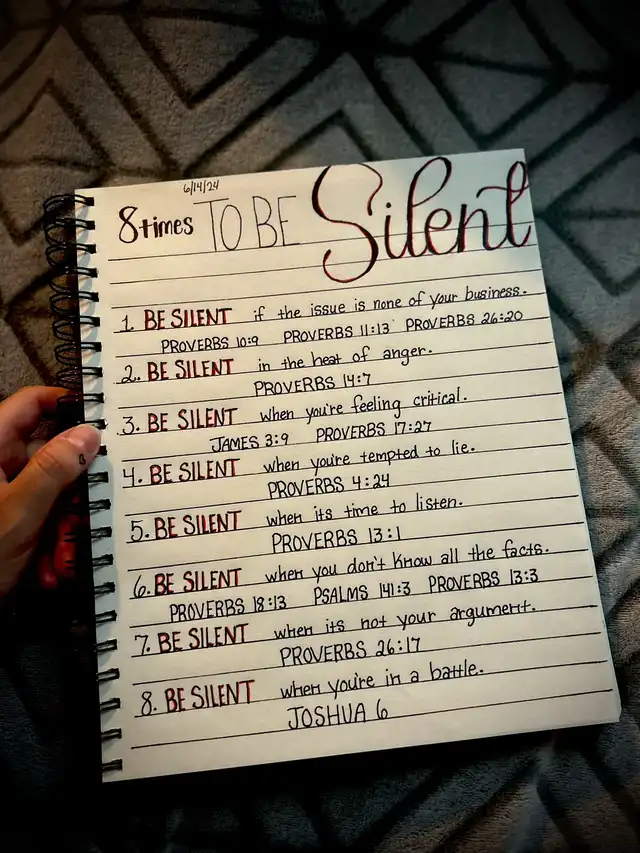 6/14/24
8 times TO BE Silent
1. BE SILENT if the issue is none of your business.
PROVERBS 10:9 PROVERBS 11:13 PROVERBS 26:20
2. BE SILENT in the heat of anger.
PROVERBS 14:7
3. BE SILENT when you're feeling critical.
JAMES 3:9 PROVERBS 17:27
4. BE SILENT when you're tempted to lie.
PROVERBS 4:24
5. BE SILENT when its time to listen.
PROVERBS 13:1
6. BE SILENT when you don't know all the facts.
PROVERBS 18:13 PSALMS 141:3 PROVERBS 13:3
7. BE SILENT when its not your argument.
PROVERBS 26:17
8. BE SILENT when you're in a battle.
JOSHUA 6